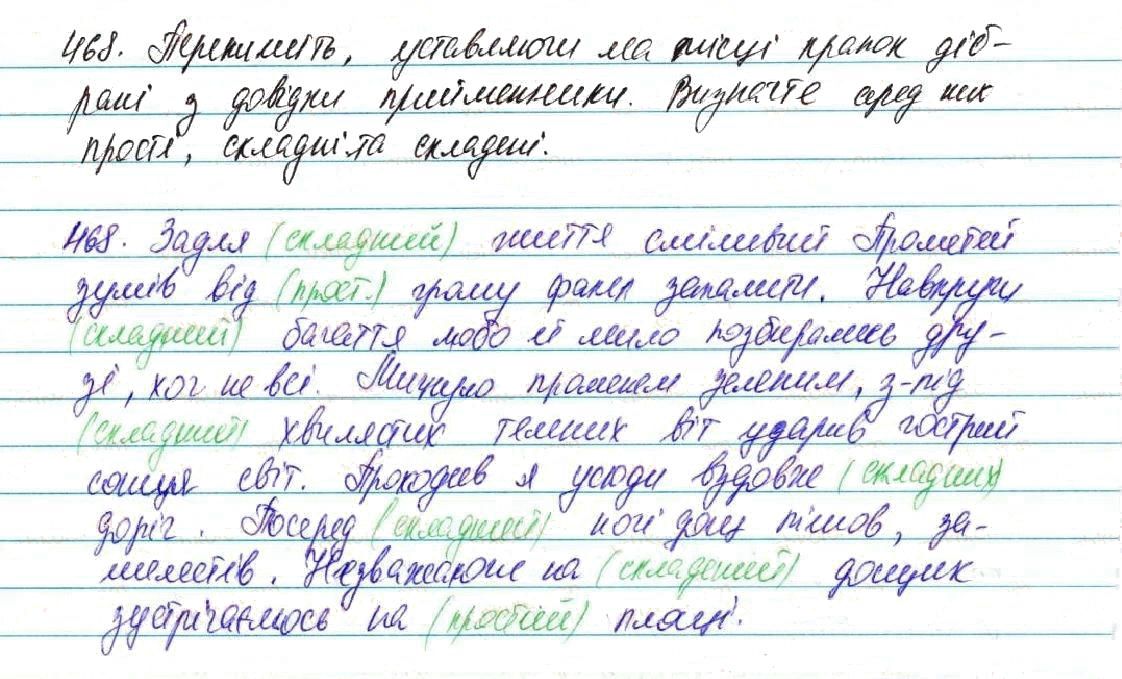 468. Перепишіть, уставляючи на місці крапок діб-
рані з довідки прийменники. Визначте серед них
прості, складні та складені.
468. Задля (складний) життя сміливий Прометей
зумів від (прост.) грому факел запалити. Навкруги
(складний) багаття любо й мило позбирались дру-
зі, хоч не всі. Мигнуло променем зеленим, з-під
(складний) хвилястих темних віт ударив гострий
сонця світ. Проходив я усюди вздовж (складних)
доріг. Посеред (складний) ночі дощ пішов, за-
шелестів. Незважаючи на (складений) дощик
зустрічаємось на (простий) площі.